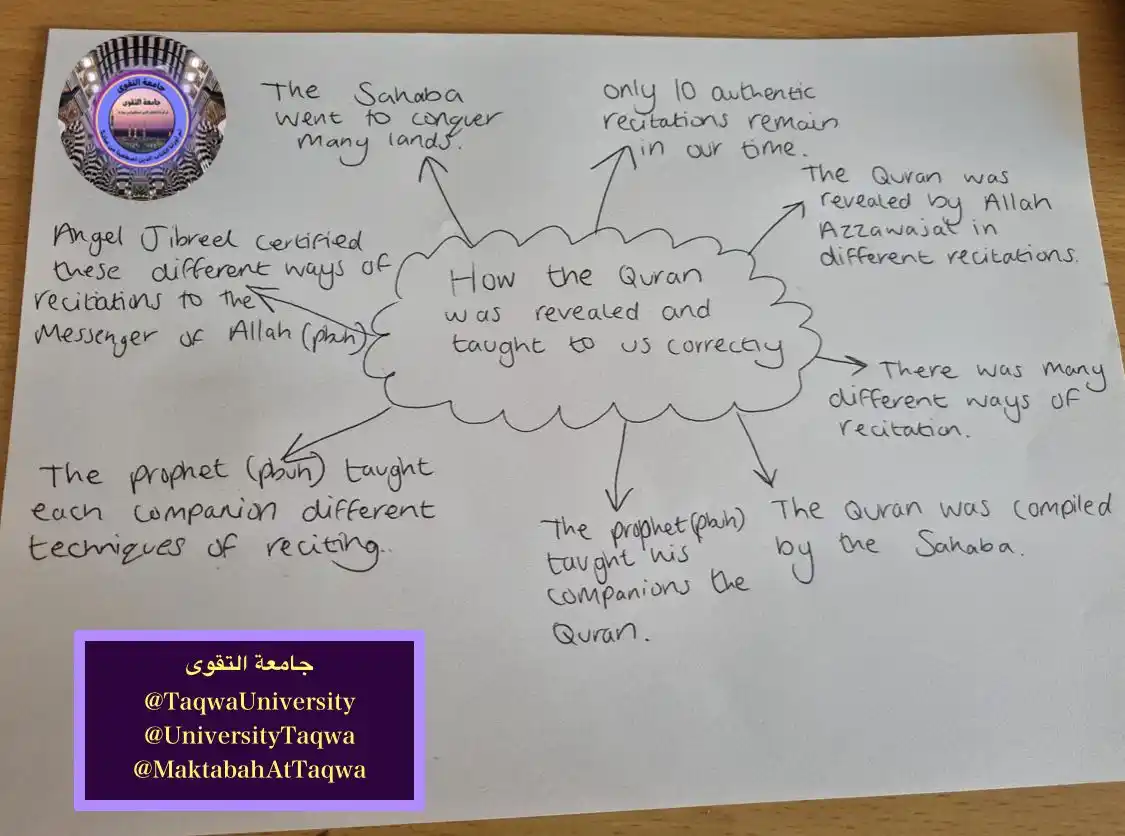 جامعة التقوى
جامعة التقوى
The Sahaba
went to conquer
many lands.
only 10 authentic
recitations remain
in our time.
The Quran was
revealed by Allah
Azzawajal in
different recitations.
Angel Jibreel certified
these different ways of
recitations to the
Messenger of Allah (pbuh)
How the Quran
was revealed and
taught to us correctly
There was many
different ways of
recitation.
The prophet (pbuh) taught
each companion different
techniques of reciting.
The prophet (pbuh)
taught his
companions the
Quran.
The Quran was compiled
by the Sahaba.
جامعة التقوى
@TaqwaUniversity
@UniversityTaqwa
@MaktabahAtTaqwa